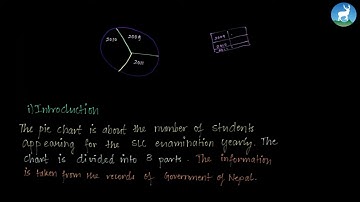 2010 2009
2011
2009
i) Introduction
The pie chart is about the number of students
appearing for the SLC examination yearly. The
chart is divided into 3 parts. The information
is taken from the records of Government of Nepal.